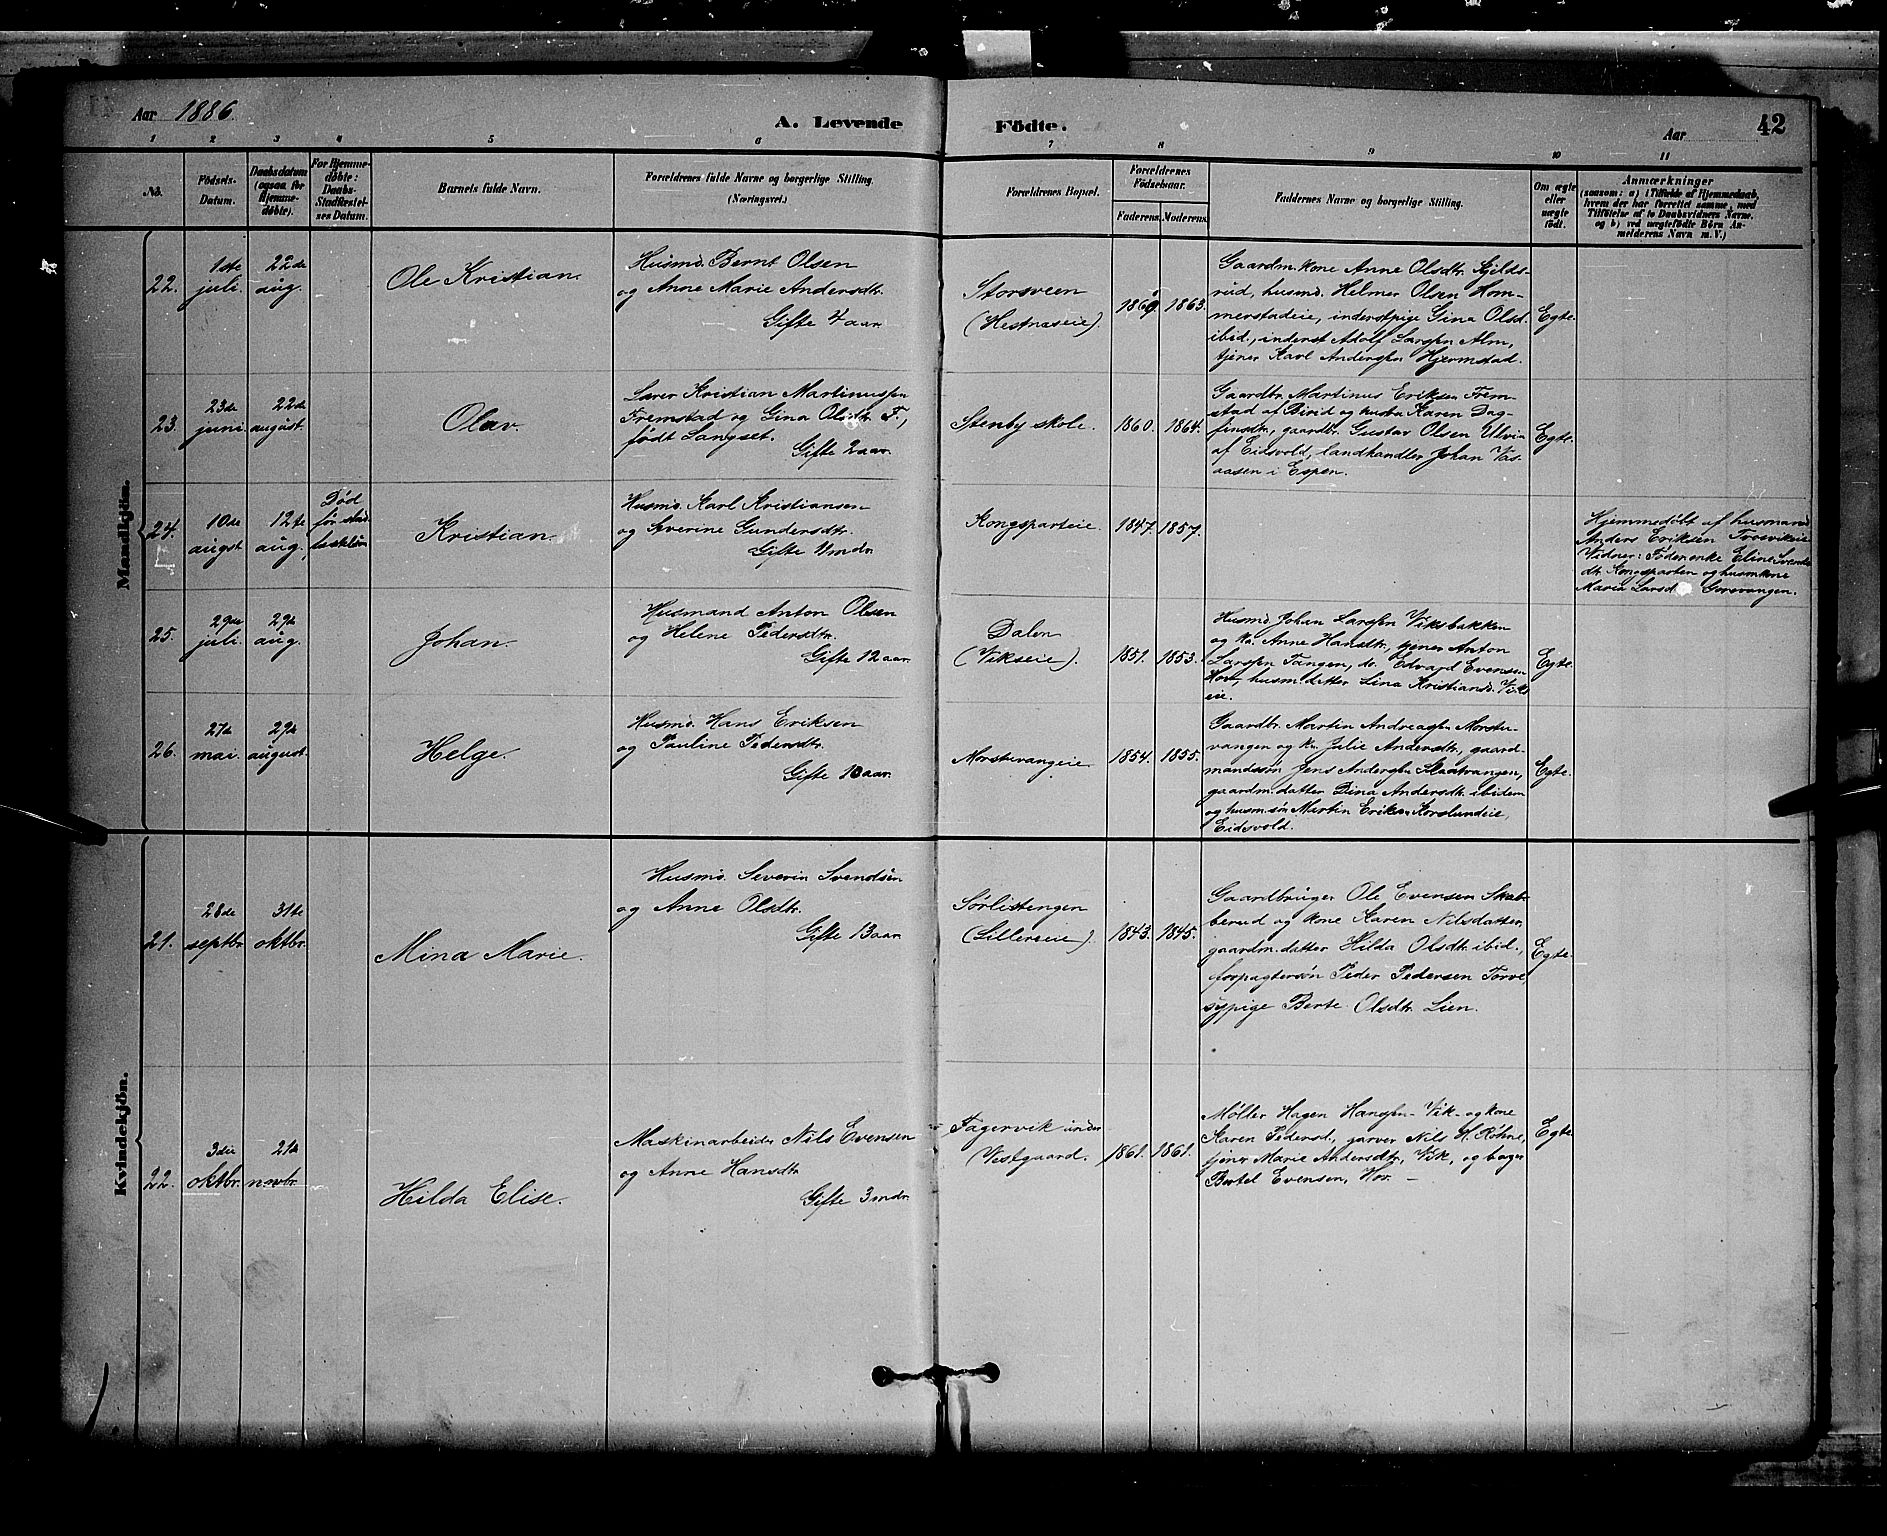 Aar 1886.
A. Levende Födte.
Aar
42
1 2 3 4 5 6 7 8 9 10 11
No.
Födsels-
Datum.
Daabsdatum
(ogsaa for
Hjemme-
döbte).
For Hjemme-
döbte:
Daabs-
Stadfæstel-
ses Datum.
Barnets fulde Navn.
Forældrenes fulde Navne og borgerlige Stilling.
(Næringsvei.)
Forældrenes Bopæl.
Forældrenes
Födselsaar.
Faderens. Moderens.
Faddernes Navne og borgerlige Stilling.
Om ægte
eller
uægte
födt.
Anmærkninger
(saasom: a) i Tilfælde af Hjemmedaab,
hvem der har forrettet samme, med
Tilföielse af to Daabsvidners Navne.
og b) ved uægtefödte Börn An-
melderens Navn m. V.)
Mandkjön.
22.
1ste
juli.
22de
aug.
Ole Kristian.
Husmd. Bernt Olsen
og Anne Marie Andersdtr.
Gifte 4 aar.
Storsveen
(Hestnæseie).
1860. 1863.
Gaardm.kone Anne Olsdtr. Kjelds-
rud, husmd. Helmer Olsen Hom-
merstadeie, inderstpige Gina Olsd.
ibid., inderst Adolf Larssen Alm,
tjener Karl Anderssen Hjermstad.
Egte.
23.
23de
juni
22de
august.
Olav.
Lærer Kristian Martinussen
Fremstad og Gina Olsdtr. F.,
født Langset.
Gifte 2 aar.
Stenby skole.
1860. 1864.
Gaardbr. Martinus Eriksen Frem-
stad af Birid og hustru Karen Dag-
finsdtr., gaardbr. Gustav Olsen Ulvin
af Eidsvold, landhandler Johan Vas-
aasen i Espen.
Egte.
24.
10de
augst.
12te
aug.
Død
før stad-
fæstelsen
Kristian.
Husmd. Karl Kristiansen
og Severine Gundersdtr.
Gifte 11 mdr.
Kongsparteie.
1847. 1857.
Hjemmedøbt af husmand
Anders Eriksen
Vidner: Føderenke Eline Svends-
dtr. Kongsparten og husm.kone
Maria Larsd.
25.
29de
juli.
29de
aug.
Johan.
Husmand Anton Olsen
og Helene Pedersdtr.
Gifte 12 aar.
Dalen
(Vikseie).
1851. 1853.
Husmd. Johan Larssen Viksbakken
og ko. Anne Hansdtr., tjener Anton
Larssen Tangen, do. Edvard Evensen
Hov, husm.datter Lina Kristiansd. Viks-
eie.
Egte.
26.
27de
mai.
29de
august.
Helge.
Husmd. Hans Eriksen
og Pauline Pedersdtr.
Gifte 10 aar.
Morstuvangeie.
1854. 1855.
Gaardbr. Martin Andreassen Morstu-
vangen og ko. Julie Andersdtr., gaard-
mandssøn Jens Anderssen Slaatvangen,
gaardm.datter Dina Andersdtr. ibidem
og husm.søn Martin Eriksen Korslundeie,
Eidsvold.
Egte.
Kvindekjön.
21.
28de
septbr.
31te
oktbr.
Mina Marie.
Husmd. Severin Svendsen
og Anne Olsdtr.
Gifte 13 aar.
Sørlistengen
(Lillerseie).
1843. 1845.
Gaardbruger Ole Evensen Skab-
berud og kone Karen Nilsdatter,
gaardm.datter Hilda Olsdtr. ibid.,
forpagtersøn Peder Pedersen Torve,
sypige Berte Olsdtr. Lien.
Egte.
22.
3die
oktbr.
21de
novbr.
Hilda Elise.
Maskinarbeider Nils Evensen
og Anne Hansdtr.
Gifte 3 mdr.
Fagervik under
Vestgaard.
1861. 1861.
Møller Hagen Hanssen Vik og kone
Karen Pedersd., garver Nils H. Røhne,
tjener Marie Andersdtr., Vik, og bager
Bertel Evensen, Hov. –
Egte